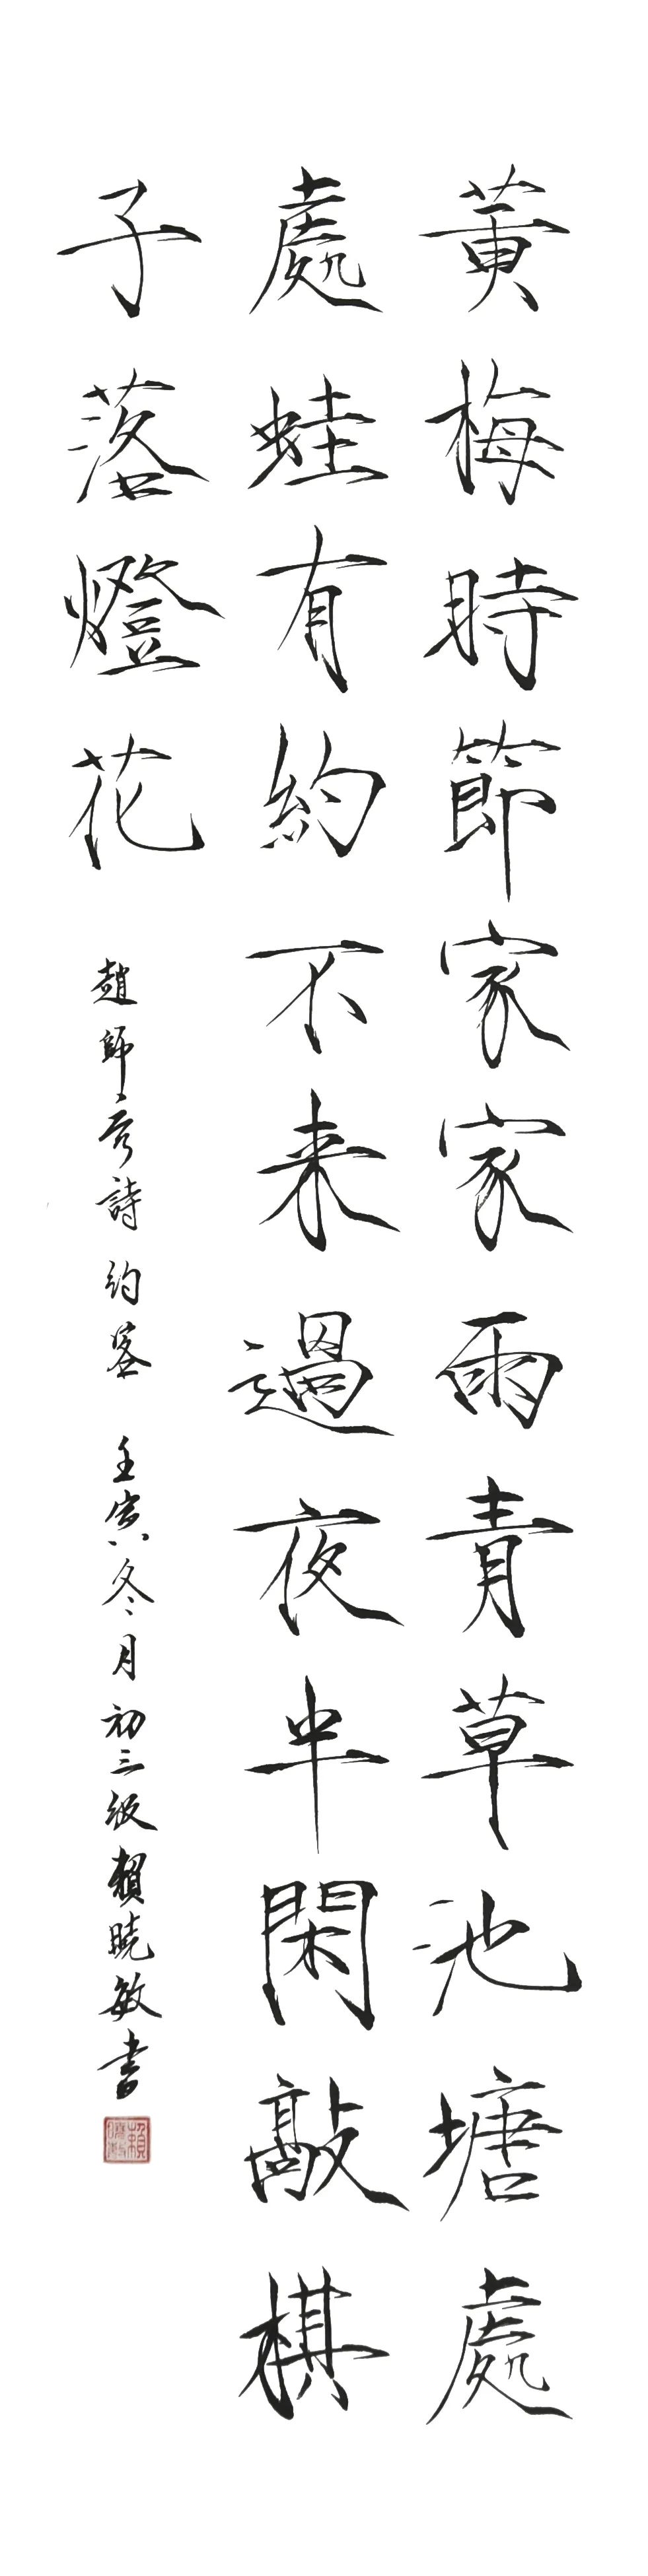 黃梅時節家家雨青草池塘處
處蛙有約不来過夜半閑敲棋
子落燈花
趙師秀詩約客 壬寅冬月初三级賴曉敏書